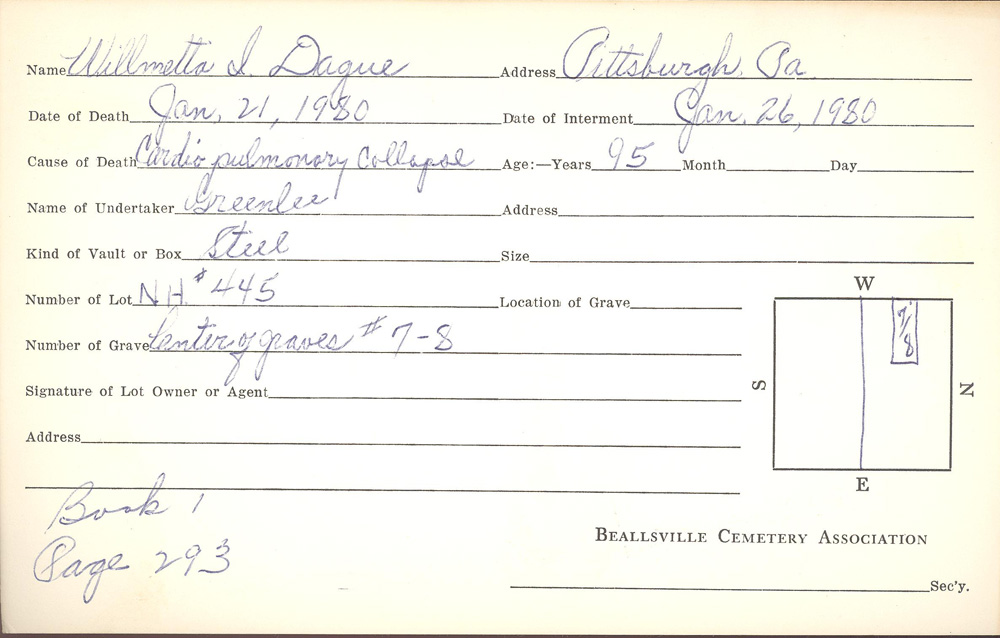 Name Willmetta I. Dague Address Pittsburgh, Pa.
Date of Death Jan. 21, 1980 Date of Interment Jan. 26, 1980
Cause of Death Cardio pulmonary Collapse Age:—Years 95 Month Day
Name of Undertaker Greenlee Address
Kind of Vault or Box Steel Size
Number of Lot N H # 445 Location of Grave
Number of Grave Center of graves # 7-8
Signature of Lot Owner or Agent
Address
W
7/8
S
N
E
Book 1
Page 293
BEALLSVILLE CEMETERY ASSOCIATION
Sec'y.